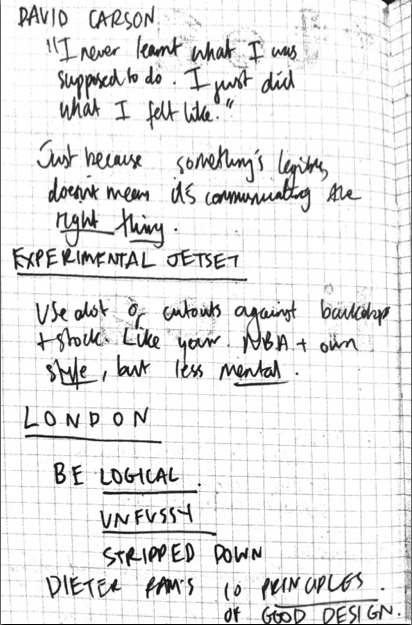 DAVID CARSON
"I never learnt what I was
supposed to do. I just did
what I felt like."
Just because something's
doesn't mean it's communicating the
right thing.
EXPERIMENTAL JETSET
Use alot of cutouts against backdrop
+ stock. Like your NBA + own
style, but less mental.
LONDON
BE LOGICAL.
UNFUSSY
STRIPPED DOWN
DIETER RAM'S 10 PRINCIPLES.
OF GOOD DESIGN.